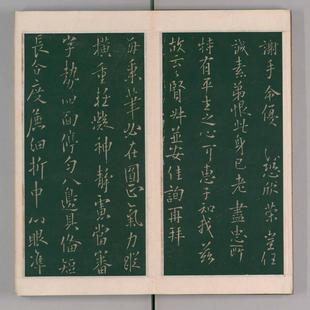 欣榮
誠素莫恨此身已老盡忠所
特有平生之心可惠子知我茲
故云賢並安佳詢再拜
每秉筆必在圓正氣力縱
橫重輕凝神靜慮當審
字勢四面停勻八邊具備短
長合度麤細折中心眼準